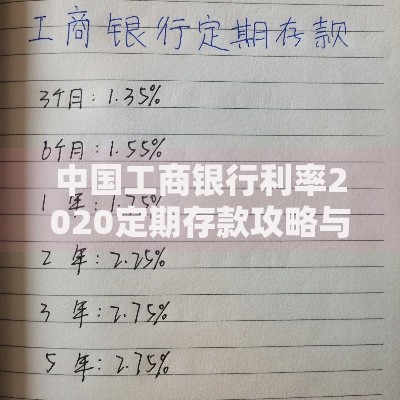 工商银行定期存款
3个月:1.35%
6个月:1.55%
中国工商银行利率2
020定期存款攻略与
1 年:1.75%
2 年:2.25%
3 年:2.75%
5 年:2.75%